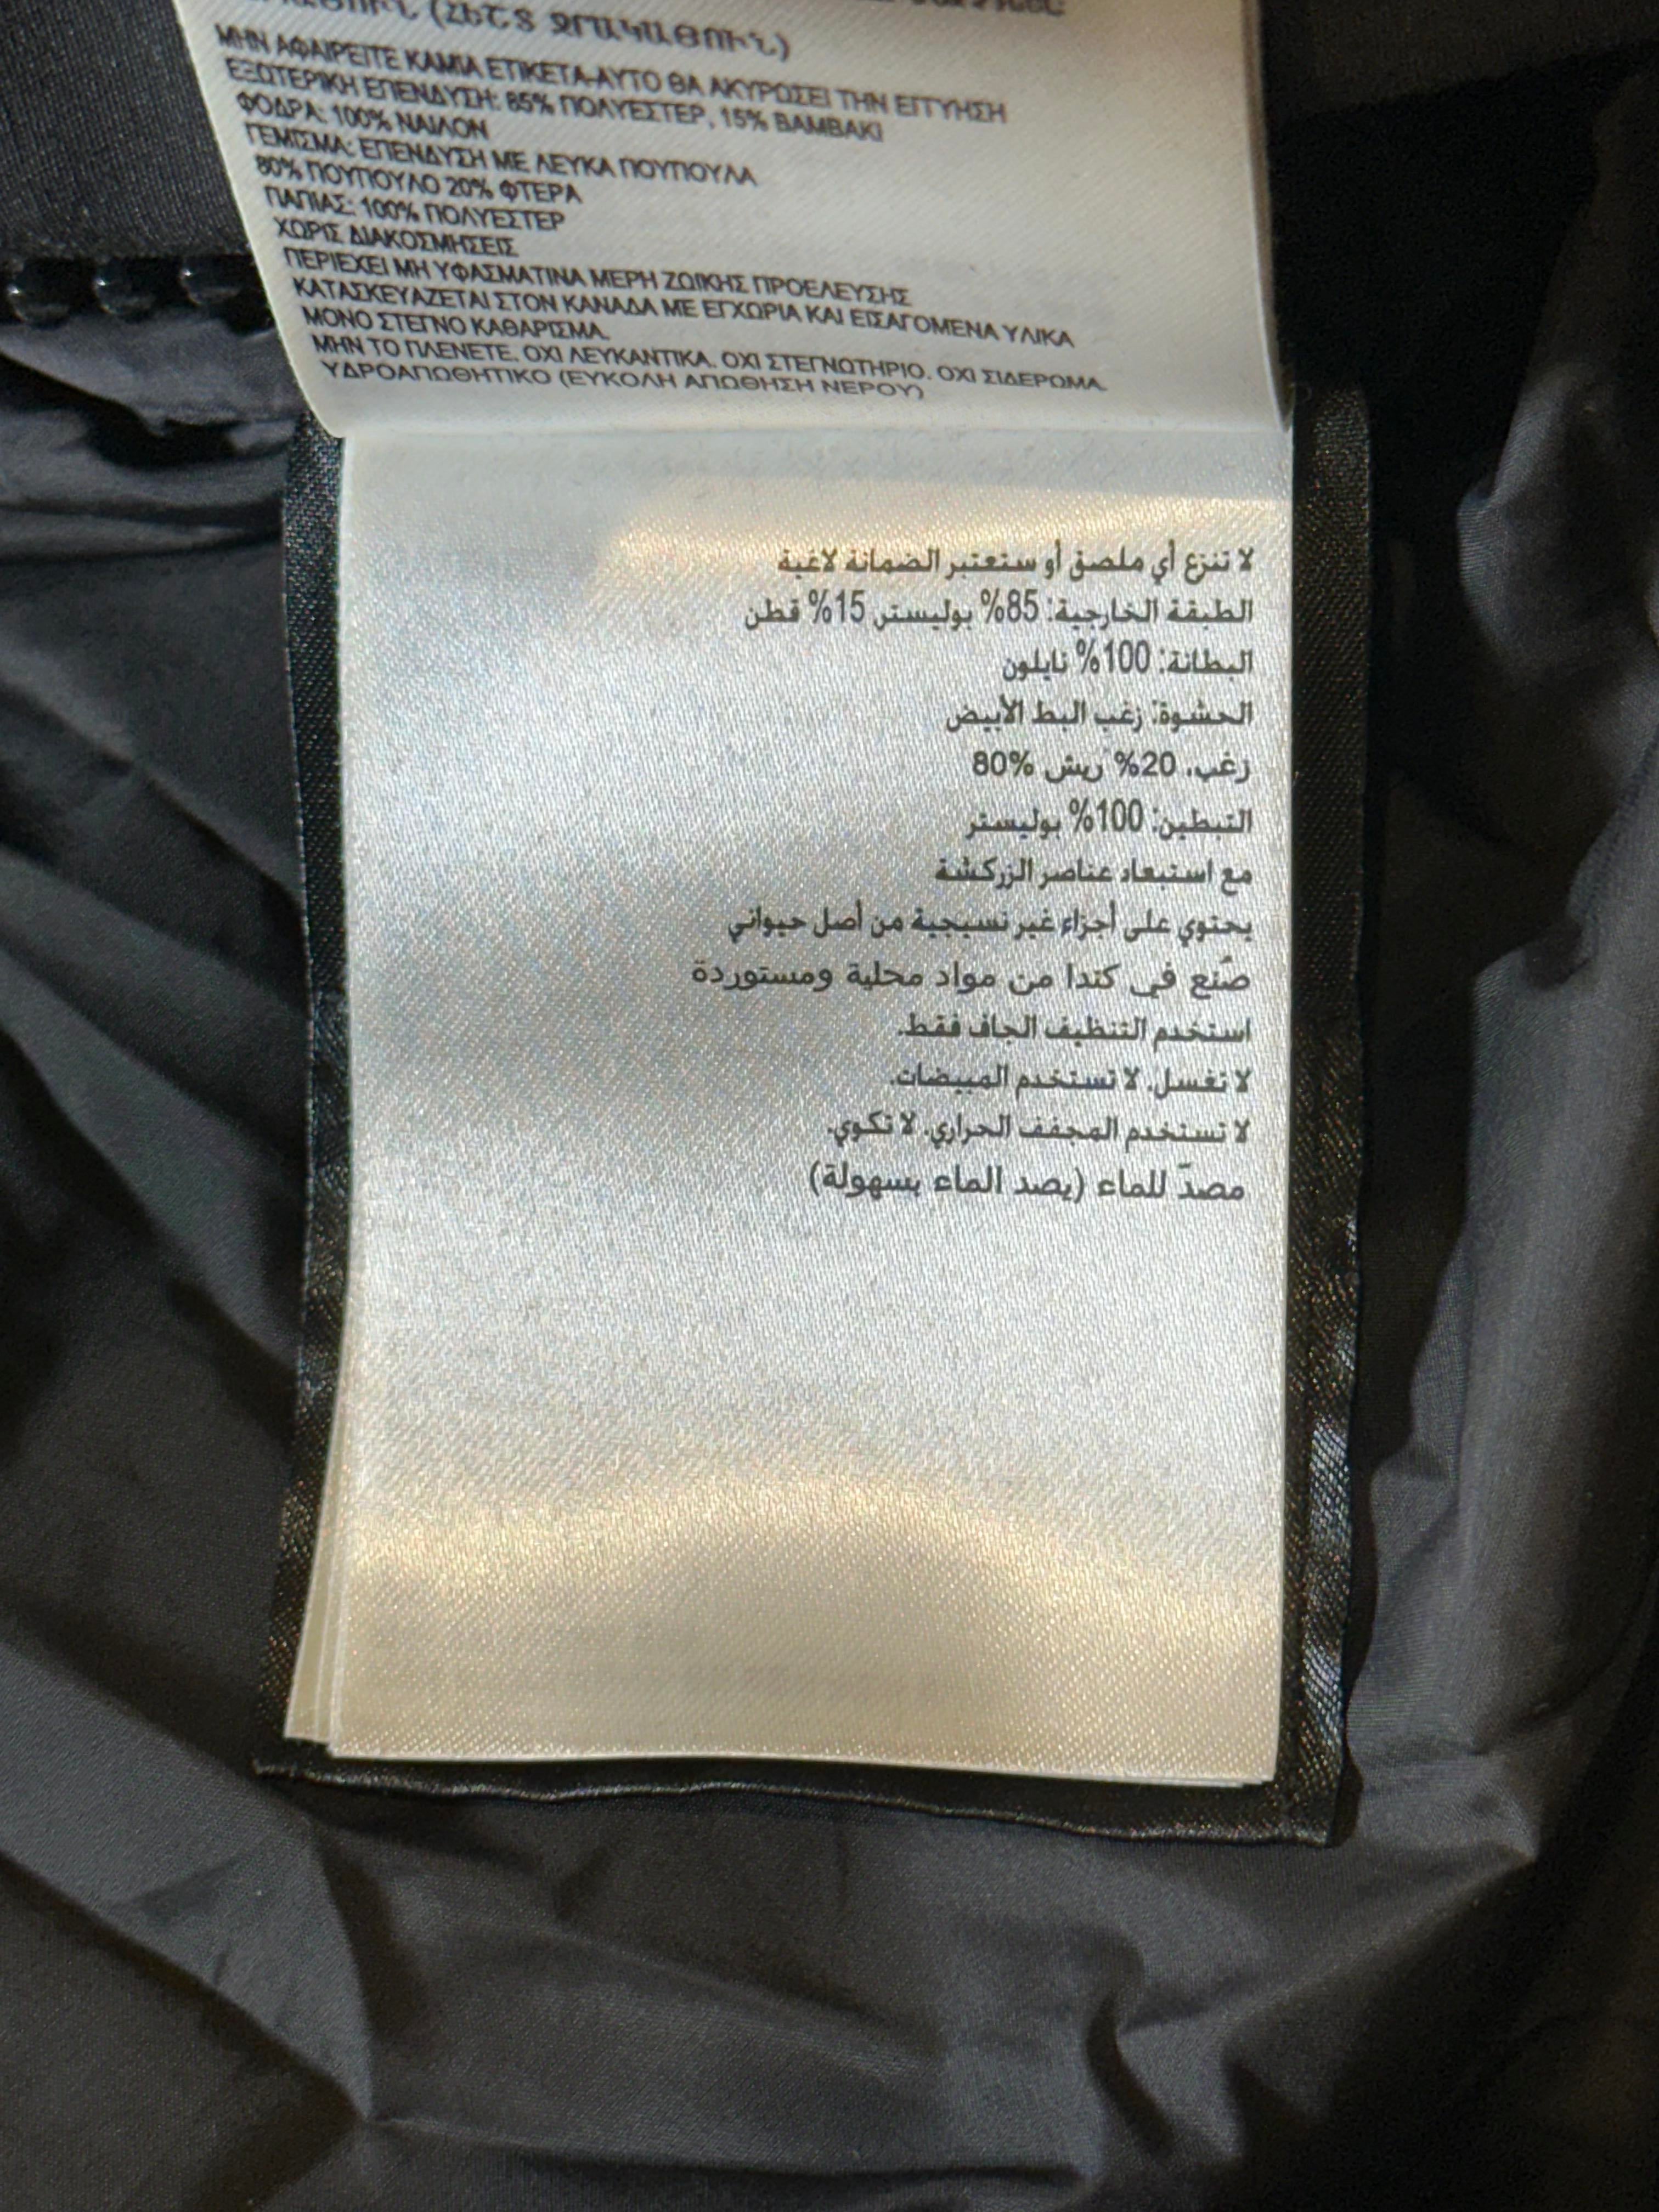 (ՀԵՇՏ ՋՐԱԿԱՅՈՒՆ)
ΜΗΝ ΑΦΑΙΡΕΙΤΕ ΚΑΜΙΑ ΕΤΙΚΕΤΑ-ΑΥΤΟ ΘΑ ΑΚΥΡΩΣΕΙ ΤΗΝ ΕΓΓΥΗΣΗ
ΕΞΩΤΕΡΙΚΗ ΕΠΕΝΔΥΣΗ: 85% ΠΟΛΥΕΣΤΕΡ, 15% ΒΑΜΒΑΚΙ
ΦΟΔΡΑ: 100% ΝΑΙΛΟΝ
ΓΕΜΙΣΜΑ: ΕΠΕΝΔΥΣΗ ΜΕ ΛΕΥΚΑ ΠΟΥΠΟΥΛΑ
80% ΠΟΥΠΟΥΛΟ 20% ΦΤΕΡΑ
ΠΑΠΙΑΣ: 100% ΠΟΛΥΕΣΤΕΡ
ΧΩΡΙΣ ΔΙΑΚΟΣΜΗΣΕΙΣ
ΠΕΡΙΕΧΕΙ ΜΗ ΥΦΑΣΜΑΤΙΝΑ ΜΕΡΗ ΖΩΙΚΗΣ ΠΡΟΕΛΕΥΣΗΣ
ΚΑΤΑΣΚΕΥΑΖΕΤΑΙ ΣΤΟΝ ΚΑΝΑΔΑ ΜΕ ΕΓΧΩΡΙΑ ΚΑΙ ΕΙΣΑΓΟΜΕΝΑ ΥΛΙΚΑ
ΜΟΝΟ ΣΤΕΓΝΟ ΚΑΘΑΡΙΣΜΑ.
ΜΗΝ ΤΟ ΠΛΕΝΕΤΕ. ΟΧΙ ΛΕΥΚΑΝΤΙΚΑ. ΟΧΙ ΣΤΕΓΝΩΤΗΡΙΟ. ΟΧΙ ΣΙΔΕΡΩΜΑ.
ΥΔΡΟΑΠΩΘΗΤΙΚΟ (ΕΥΚΟΛΗ ΑΠΩΘΗΣΗ ΝΕΡΟΥ)
لا تنزع أي ملصق أو ستعتبر الضمانة لاغية
الطبقة الخارجية: 85% بوليستر, 15% قطن
البطانة: 100% نايلون
الحشوة: زغب البط الأبيض
زغب، 20% ريش 80%
التبطين: 100% بوليستر
مع استبعاد عناصر الزركشة
يحتوي على أجزاء غير نسيجية من أصل حيواني
صُنع في كندا من مواد محلية ومستوردة
استخدم التنظيف الجاف فقط.
لا تغسل. لا تستخدم المبيضات.
لا تستخدم المجفف الحراري. لا تكوي.
مصدّ للماء (يصد الماء بسهولة)